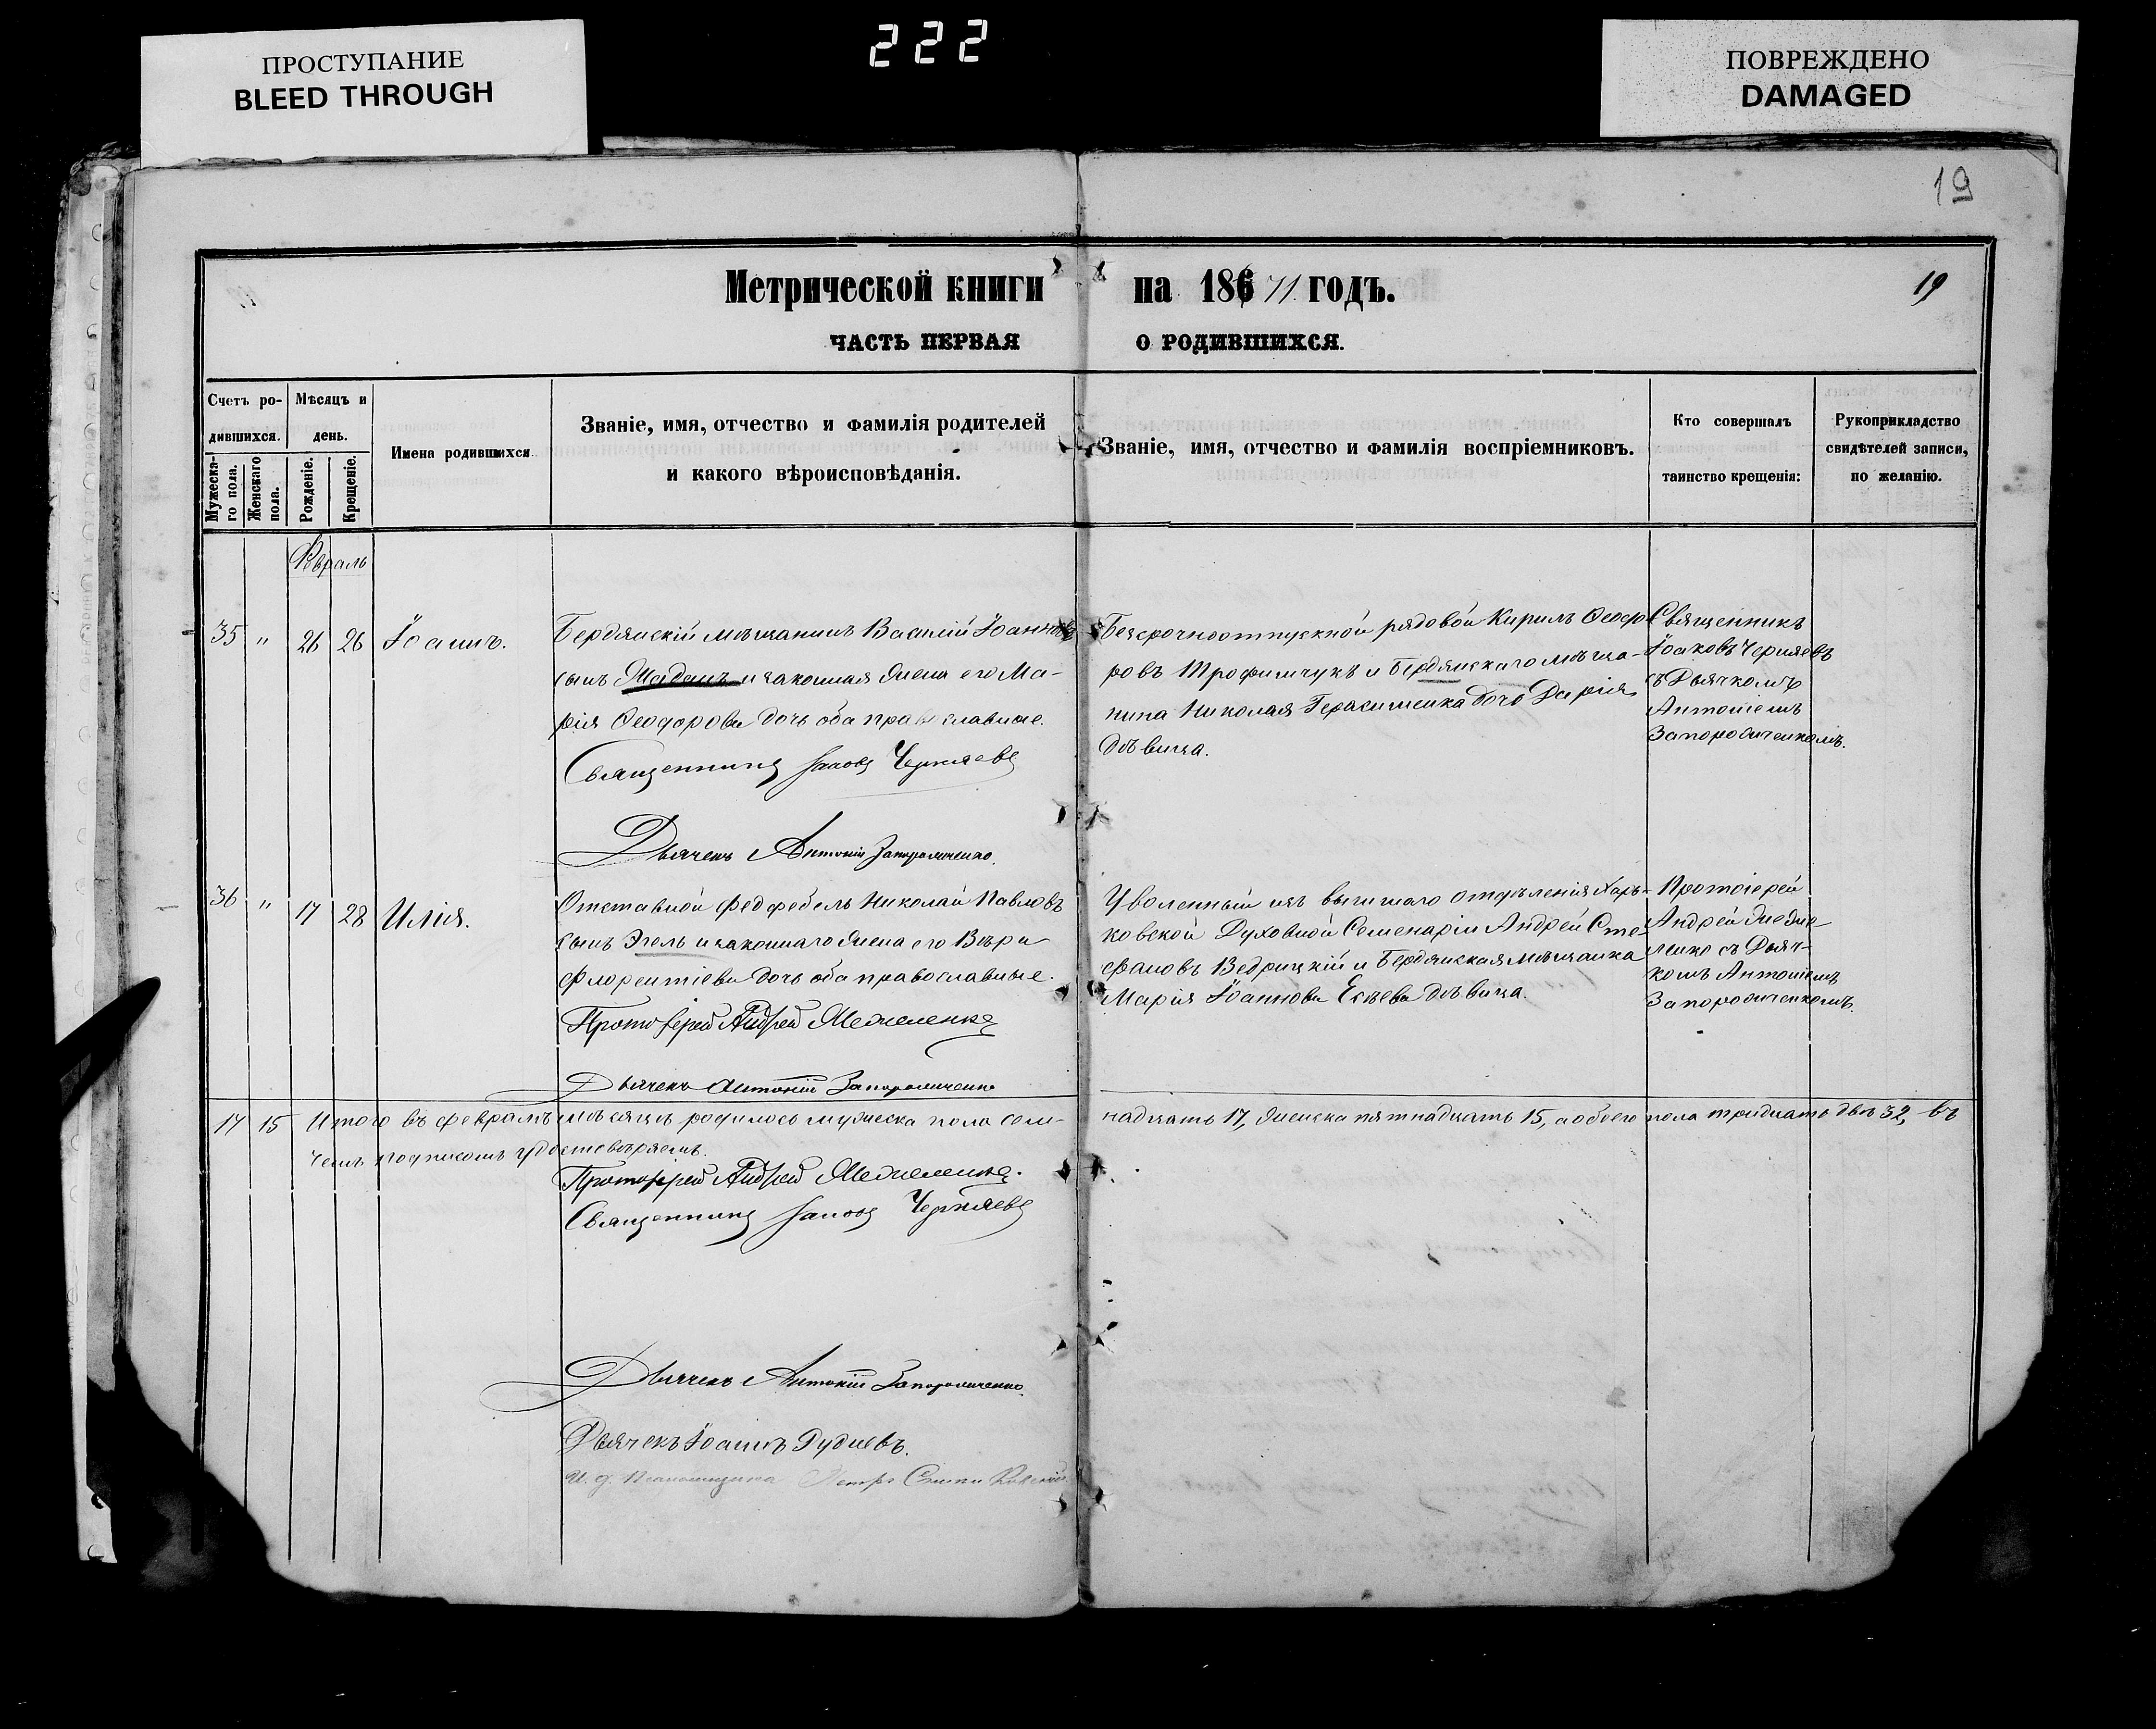 ПРОСТУПАНИЕ
BLEED THROUGH
222
ПОВРЕЖДЕНО
DAMAGED
19
Метрической книги на 1871 годъ.
19
ЧАСТЬ ПЕРВАЯ О РОДИВШИХСЯ.
Счетъ ро-
дившихся.
Мужеска-
го пола.
Женскаго
пола.
Мѣсяцъ и
день.
Рожденіе.
Крещеніе.
Имена родившихся
Званіе, имя, отчество и фамилія родителей
и какого вѣроисповѣданія.
Званіе, имя, отчество и фамилія воспріемниковъ.
Кто совершалъ
таинство крещенія:
Рукоприкладство
свидѣтелей записи,
по желанію.
Февраль
35 " 26 26 Іоаннъ.
Бердянскій мѣщанинъ Василій Іоанновъ
сынъ Жаданъ и законная жена его Ма-
рія Ѳеодорова дочь оба православные.
Священникъ Іаковъ Черняевъ
Дьячекъ Антоній Запорожченко.
Безсрочноотпускной рядовой Кирилъ Ѳеодо
ровъ Трофимчукъ и Бердянскаго мѣща-
нина Николая Герасименка дочь Дарія
дѣвица.
Священникъ
Іоаковъ Черняевъ
съ Дьячкомъ
Антоніемъ
Запорожченкомъ.
36 " 17 28 Илія.
Отставной Фелдфебель Николай Павловъ
сынъ Эгель и законная жена его Вѣра
Флорентіева дочь оба православные.
Протоіерей Андрей Межеленко
Дьячекъ Антоній Запорожченко
Уволенный изъ высшаго отдѣленія Харь-
ковской Духовной Семенаріи Андрей Сте-
фановъ Ведрицкій и Бердянская мѣщанка
Марія Іоаннова дѣвица.
Протоіерей
Андрей Меже
ленко съ Дьяч-
комъ Антоніемъ
Запорожченкомъ.
17 15 Итого въ февралѣ мѣсяцѣ родилось мужеска пола сем-
надцать 17, женска пятнадцать 15, а обоего пола тридцать два 32, въ
чемъ подписомъ удостовѣряемъ.
Протоіерей Андрей Межеленко.
Священникъ Іаковъ Черняевъ
Дьячекъ Антоній Запорожченко.
Дьячекъ Іоаннъ Рудневъ.
И. д. Псаломщика Петръ